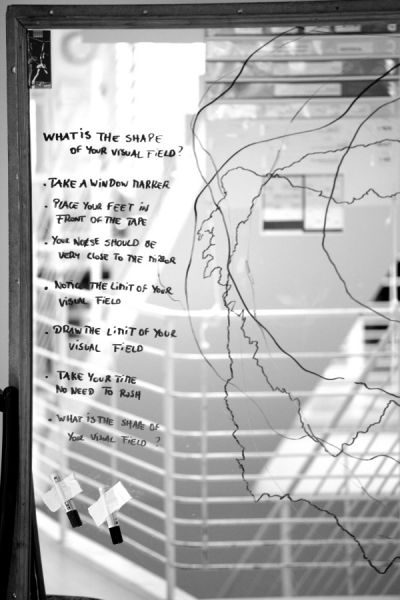 WHAT IS THE SHAPE
OF YOUR VISUAL FIELD?
. TAKE A WINDOW MARKER
. PLACE YOUR FEET IN
FRONT OF THE TAPE
. YOUR NORSE SHOULD BE
VERY CLOSE TO THE MIRROR
. NOTICE THE LIMIT OF YOUR
VISUAL FIELD
. DRAW THE LIMIT OF YOUR
VISUAL FIELD
. TAKE YOUR TIME
NO NEED TO RUSH
. WHAT IS THE SHAPE OF
YOUR VISUAL FIELD ?